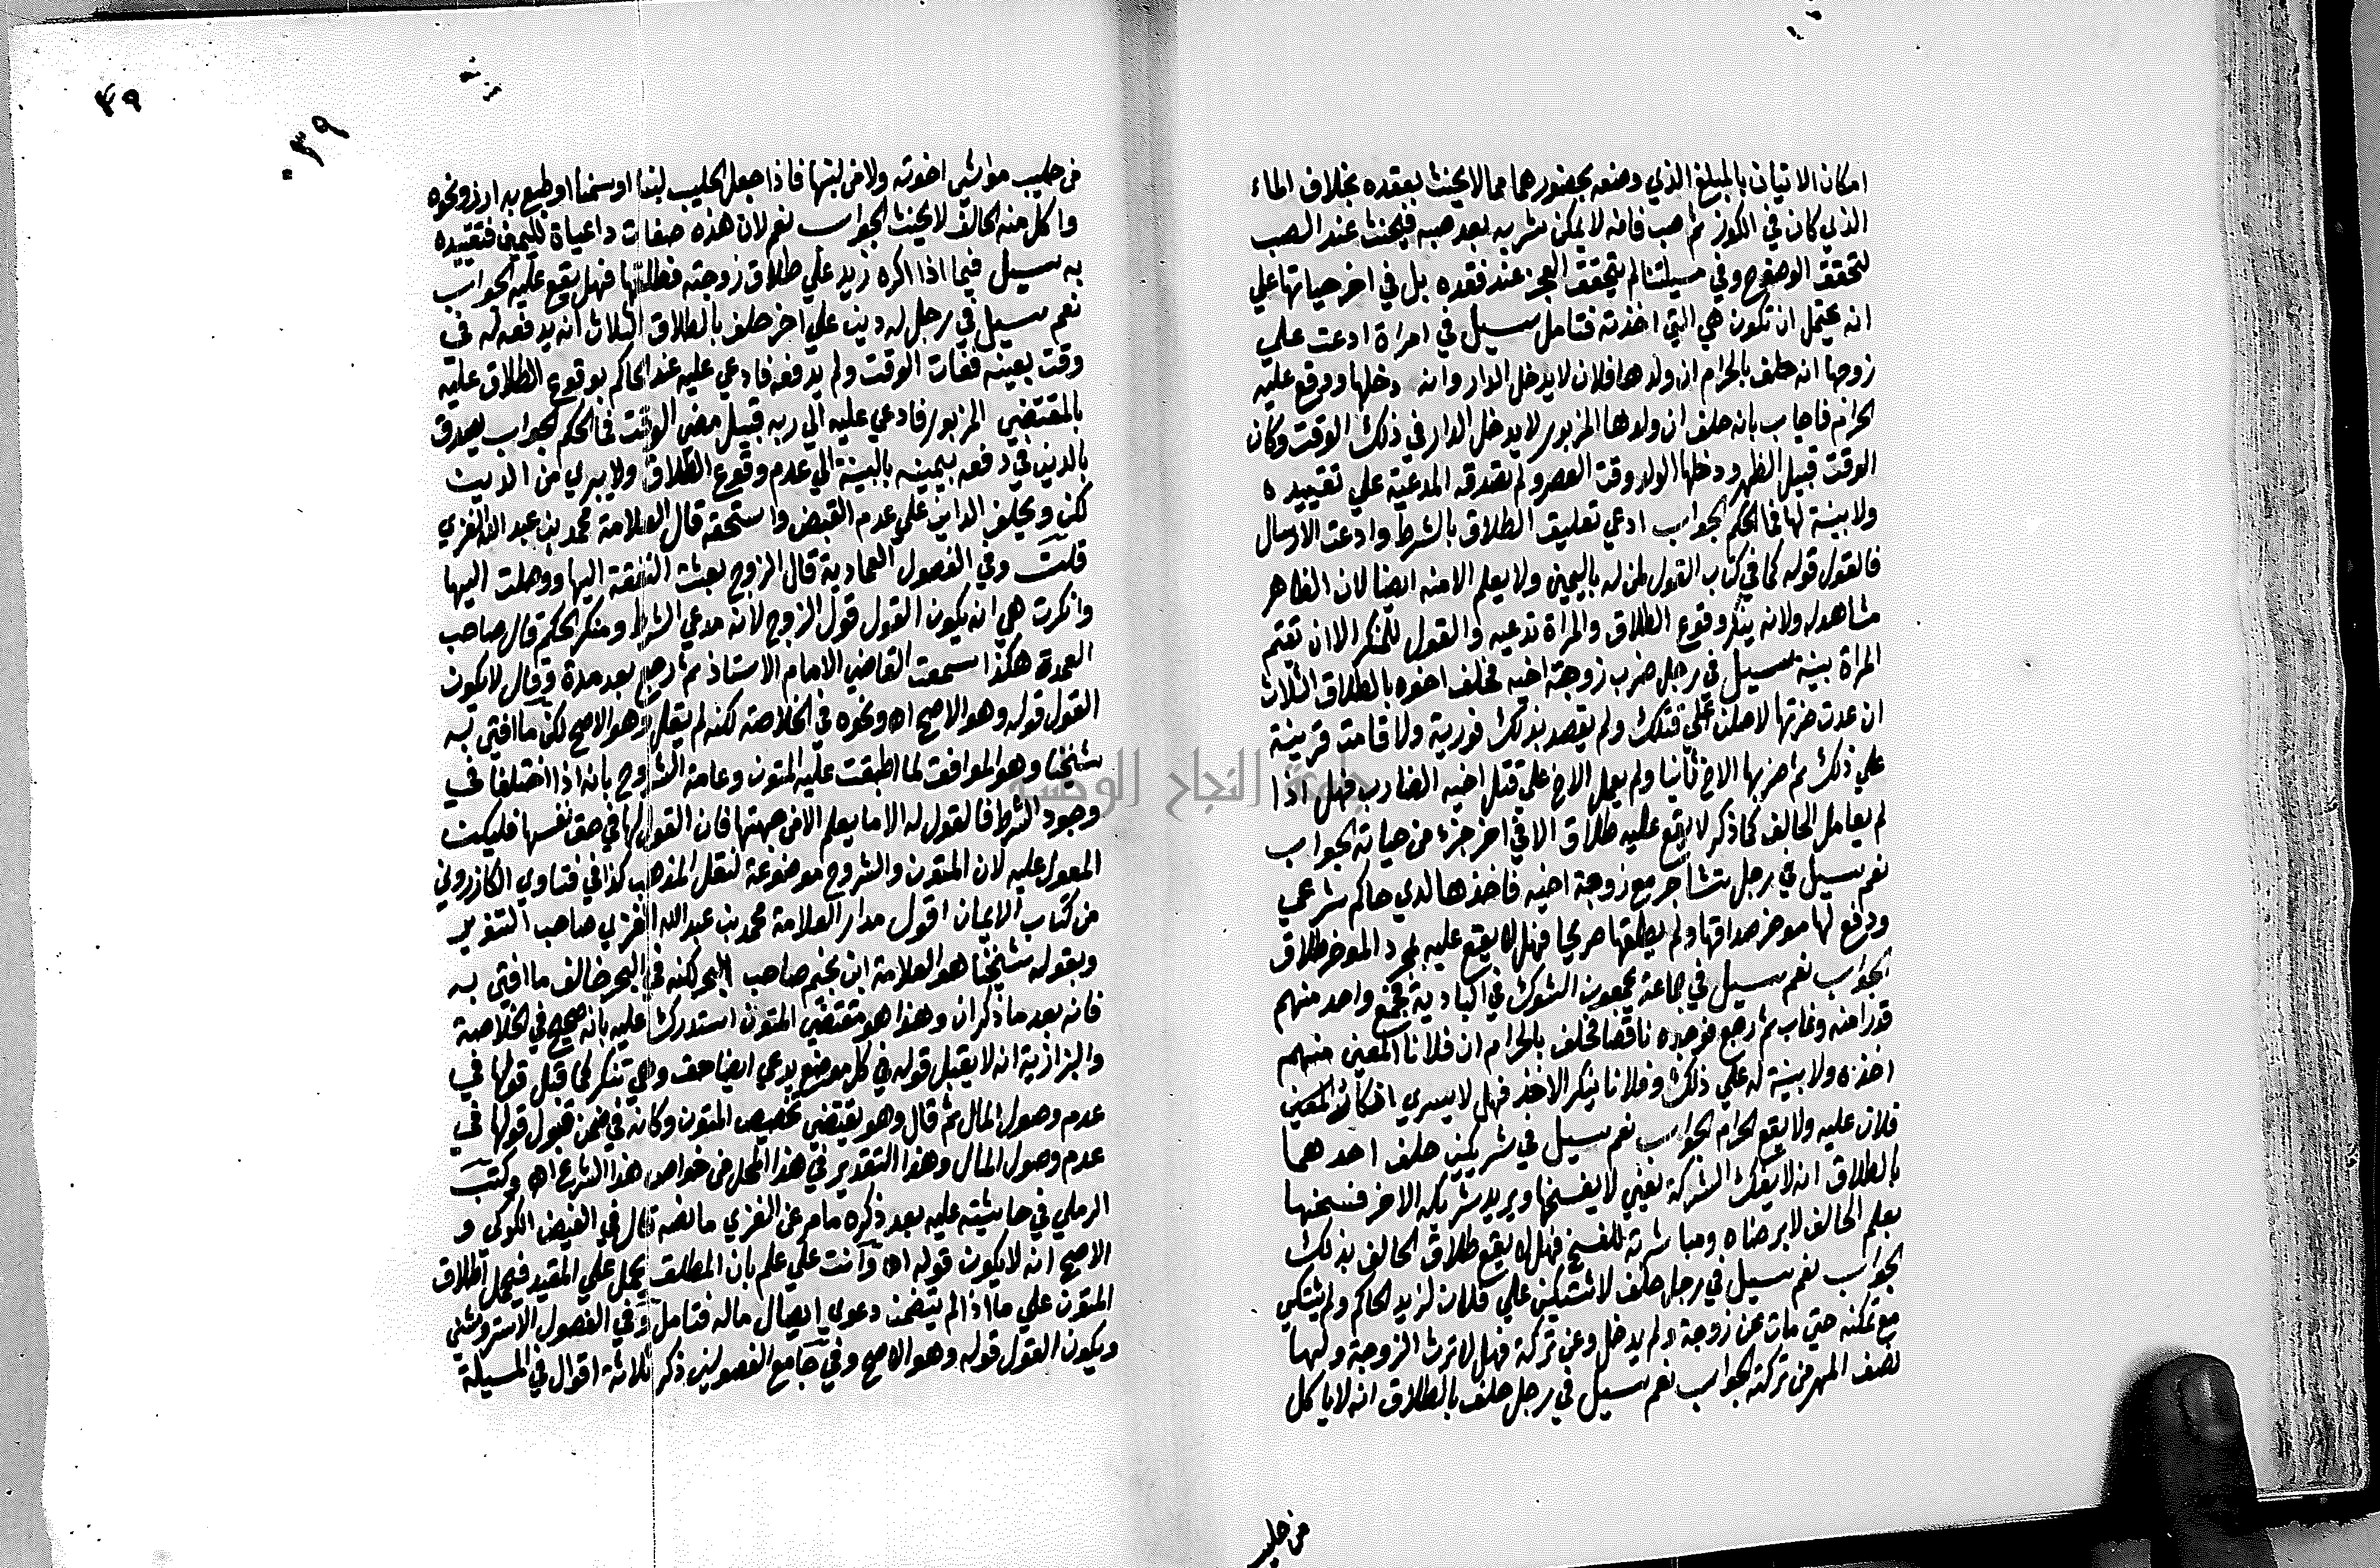 امكان الاتيان بالمبلغ الذي وضعه بحضورهما مما لا يحنث بعقده بخلاف الماء
الذي كان في الكوز ثم صب فانه لا يمكن شربه بعد صبه فيحنث عند الصب
لتحقق الوضوح وفي مسيلتنا لم يتحقق العجز عند فقده بل في اخر حياتها علي
انه يحتمل ان تكون هي التي اخذته فتامل سيل في امراة ادعت علي
زوجها انه حلف بالحرام ان ولدها فلان لا يدخل الدار وانه دخلها ووقع عليه
الحرام فاجاب بانه حلف ان ولدها المزبور لا يدخل الدار في ذلك الوقت وكان
الوقت قبيل الظهر ودخلها الولد وقت العصر ولم تصدقه المدعية علي تقييده
ولا بينة لها فما الحكم الجواب ادعي تعليق الطلاق بالشرط وادعت الارسال
فالقول قوله كما في كتاب القول لمن له باليمين ولا يعلم الا منه ايضا لان الظاهر
شاهد له ولانه ينكر وقوع الطلاق والمراة تدعيه والقول للمنكر الا ان تقتم
المراة بينة سيل في رجل ضرب زوجة اخيه فحلف اخوه بالطلاق الثلاث
ان عدت ضربتها لاعملن علي قتلك ولم يقصد بذلك فورية ولا قامت قرينة
علي ذلك ثم ضربها الاخ ثانيا ولم يعمل الاخ علي قتل اخيه الضارب فهل اذا
لم يعامل الحالف كما ذكر لا يقع عليه طلاق الا في اخر جزء من حياته الجواب
نعم سيل في رجل تشاجر مع زوجة اخيه فاخذها لدي حاكم شرعي
ودفع لها موخر صداقها ولم يطلقها صريحا فهل لا يقع عليه بمجرد الموخر طلاق
الجواب نعم سيل في جماعة يجمعون الشوك في البادية فجمع واحد منهم
قدرا منه وغاب ثم رجع فوجده ناقصا فحلف بالحرام ان فلانا المعين منهم
اخذه ولا بينة له علي ذلك وفلانا ينكر الاخذ فهل لا يسري انكار المعين
فلان عليه ولا يقع الحرام الجواب نعم سيل في شريكين حلف احدهما
بالطلاق انه لا يفك الشركة يعني لا يفسخها ويريد شريكه الاخر فسخها
بعلم الحالف لا برضاه ومباشرته للفسخ فهل لا يقع طلاق الحالف بذلك
الجواب نعم سيل في رجل حلف لا شتكين علي فلان لزيد الحاكم ولم يشتكي
مع تمكنه حتي مات عن زوجة ولم يدخل وعن تركة فهل لا ترث الزوجة ولها
نصف المهر من تركته الجواب نعم سيل في رجل حلف بالطلاق انه لا ياكل
من حليب
٣٩
٣٩
من حليب مواشي اخوته ولا من لبنها فاذا جعل الحليب لبنا او سمنا او طبع به ارز ونحوه
واكل منه الحالف لا يحنث الجواب نعم لان هذه صفات داعياة لليمين فتقيده
به سيل فيما اذا اكره زيد علي طلاق زوجته فطلقها فهل يقع عليه الجواب
نعم سيل في رجل له دين علي اخر حلف بالطلاق الثلاث انه يدفعه له في
وقت بعينه ففات الوقت ولم يدفعه فادعي عليه عند الحاكم بوقوع الطلاق عليه
بالمقتضي المزبور فادعي عليه الي ربه قبيل مضي الوقت فما الحكم الجواب يصدق
بالدين في دفعه بيمينه بالبينة الي عدم وقوع الطلاق ولا يبري من الدين
لكن ويحلف الداين علي عدم القبض واستحقه قال العلامة محمد بن عبد الله الغزي
قلت وفي الفصول العمادية قال الزوج بعثت النفقة اليها ووصلت اليها
وانكرت هي انه يكون القول قول الزوج لانه مدعي الشرط ومنكر الحكم قال صاحب
العمدة هكذا سمعت القاضي الامام الاستاذ ثم رجع بعد مدة وقال لا يكون
القول قوله وهو الاصح اه ونحوه في الخلاصة لكنه لم يقل وهو الاصح لكن ما افتي به
شيخنا وهو الموافق لما اطبقت عليه المتون وعامة الشروح بانه اذا اختلفا في
وجود الشرط فالقول له الا ما يعلم الا من جهتها فان القول لها في حق نفسها فليكن
المعول عليه لان المتون والشروح موضوعة لنقل المذهب كذا في فتاوي الكازروني
من كتاب الايمان اقول مدار العلامة محمد بن عبد الله الغزي صاحب التنوير
وبقوله شيخنا هو العلامة ابن نجيم صاحب البحر لكنه في البحر خالف ما افتي به
فانه بعد ما ذكر ان وهذا هو مقتضي المتون استدرك عليه بانه صحح في الخلاصة
والبزازية انه لا يقبل قوله في كل موضع يدعي ايفا حق وهي تنكر كما قبل قولها في
عدم وصول المال ثم قال وهو يقتضي تخصيص المتون وكانه في ضمن قبول قولها في
عدم وصول المال وهذا التقدير في هذا المحل من خواص هذا الشرع اه وكتب
الرملي في حاشيته عليه بعد ذكره ما مر عن الغزي ما نصه قال في الفيض الكركي و
الاصح انه لا يكون قوله اه وانت علي علم بان المطلق يحمل علي المقيد فيحمل اطلاق
المتون علي ما اذا لم يتضمن دعوي ايصال ماله فتامل وفي الفصول الاستروشني
ويكون القول قوله وهو الاصح وفي جامع الفصولين ذكر ثلاثة اقوال في المسيلة
جامعة النجاح الوطنية